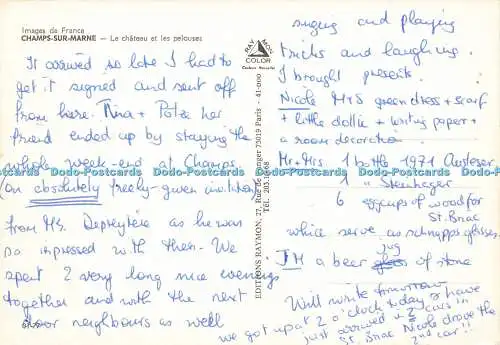 Images de France
CHAMPS-SUR-MARNE - Le château et les pelouses
It arrived so late I had to
get it signed and sent off
from here. Tina + Potz her
friend ended up by staying the
whole week-end at Champs
(on absolutely freely-given invitation)
from Mr. Depreytère as he was
so impressed with them. We
spent 2 very long nice evenings
together and with the next
door neighbours as well
we got up at 2 o'clock today & have
just arrived + 2 cars!!!
St. Briac Nicole drove the
2nd car!!
RAYMON
COLOR
EDITIONS RAYMON, 27, Rue de 75019 Paris - 41-000
TÉL. 203.
singing and playing
tricks and laughing.
I brought presents.
Nicole M+S green dress + scarf
+ little dollie + writing paper +
a room decoration
Mr + Mrs 1 bottle 1971 Auslese
1 " Steinhäger
6 eggcups of wood for
St. Briac
which serve as schnapps glasses.
JM a beer jug of stone
Will write tomorrow
Dodo-Postcards Dodo-Postcards Dodo-Postcards Dodo-Postcards